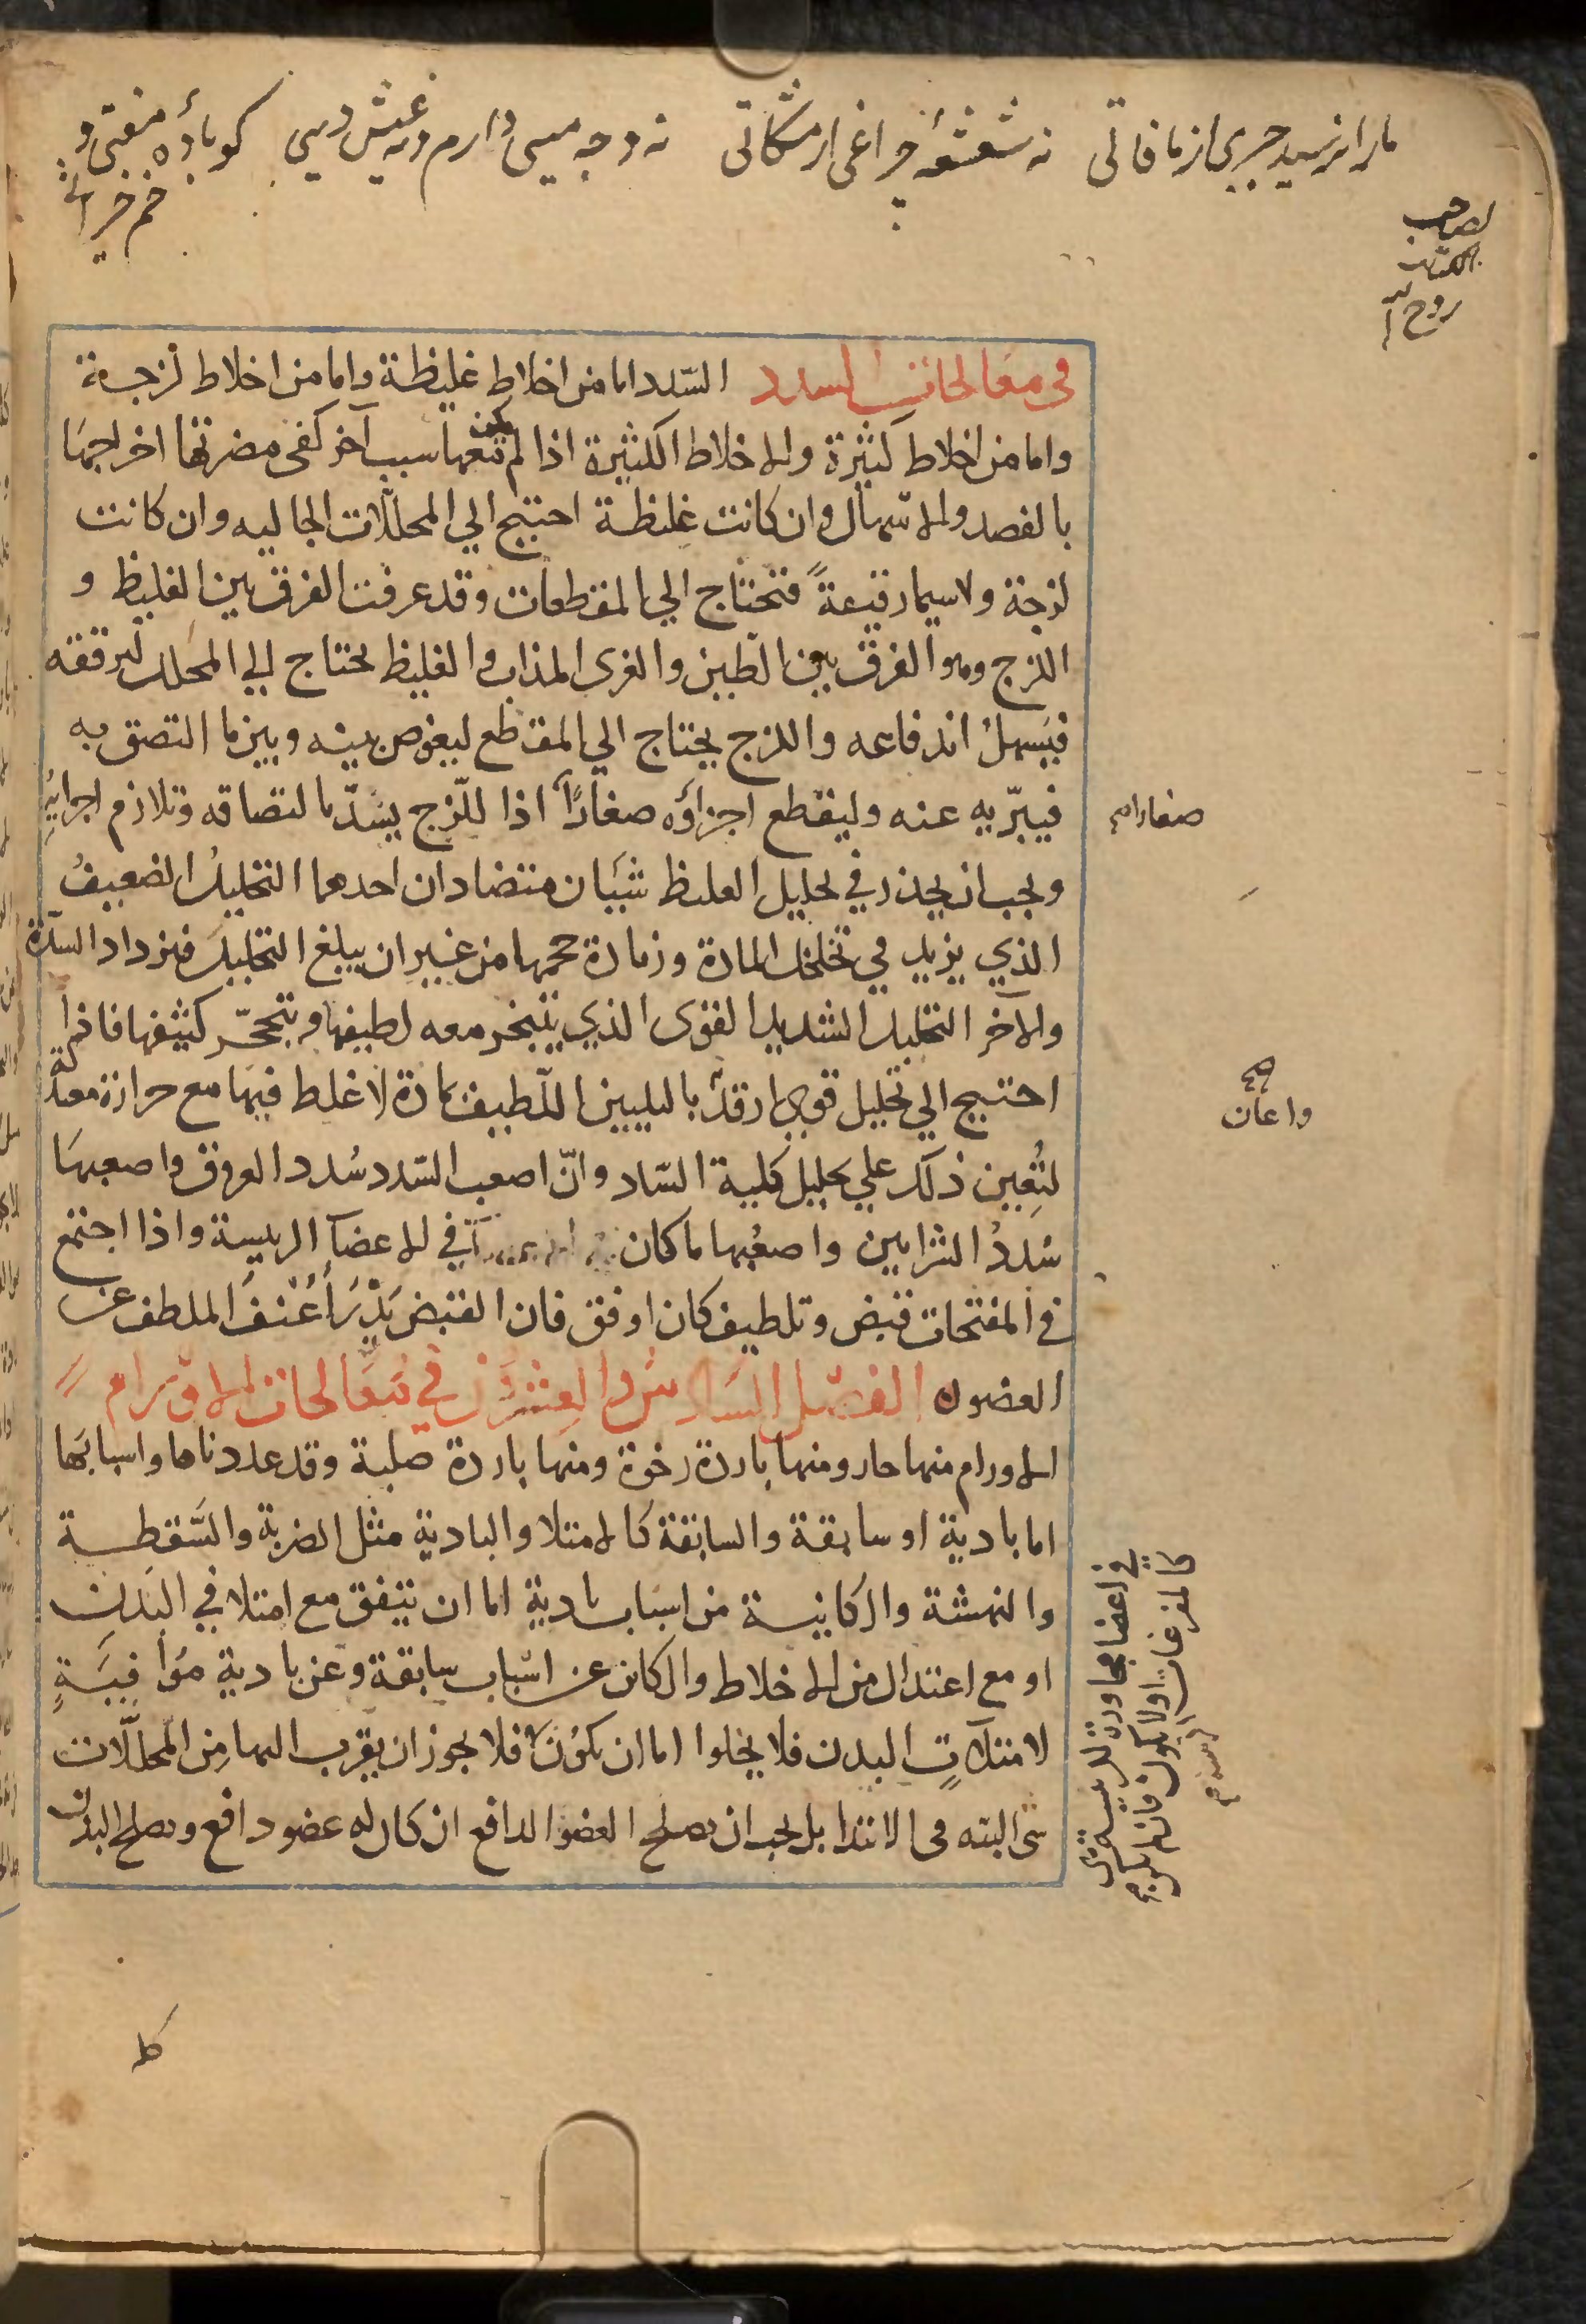 ما را نرسيد چيزى از مافاتى نه شعشعهٔ چراغى از مشكاتى نه وجه ميى دارم ونه عيش دمى كو باده مفتى و
خم خراباتى
لصاحب
الكتاب
روح الله
فى معالجات السدد السّدد اما من اخلاط غليظة واما من اخلاط لزجة
واما من اخلاط كثيرة والاخلاط الكثيرة اذا لم يكن معها سبب آخر كفى مضرتها اخراجها
بالفصد والاسهال وان كانت غليظة احتيج الي المحلّلات الجاليه وان كانت
لزجة ولا سيما رقيقةً فتحتاج الي المقطعات وقد عرفت الفرق بين الغليظ و
اللزج وهو الفرق بين الطين والغرى المذاب والغليظ يحتاج الي المحلل ليرققه
فيسهل اندفاعه واللزج يحتاج الي المقطع ليغوص بينه وبين ما التصق به
فيبرّيه عنه وليقطع اجزاؤه صغارًا اذ اللّزج يسُدّ بالتصاقه وتلازم اجزائِهِ
ويجب ان يحذر في تحليل الغلظ شيئان متضادان احدهما التحليل الضعيفُ
الذي يزيد في تخلخل المادة وزيادة حجمها من غير ان يبلغ التحليل فيزداد السدّة
والآخر التحليل الشديد القوى الذي يتبخر معه لطيفها ويتحجّر كثيفها فاذا
احتيج الي تحليل قوى اردف بالتليين اللّطيف بمادة لا غلظ فيها مع حرارة معتدلة
لتُعين ذلك علي تحليل كلية السّاد وانّ اصعب السّدد سُدد العروق واصعبها
سُددُ الشرايين واصعبُها ما كان في الاعضآ الرييسة واذا اجتمع
في المفتحات قبض وتلطيف كان اوفق فان القبض يَدْرَأ عُنْفَ الملطف عن
العضو الفصل السادس والعشرون في مُعَالجات الاورام
الاورام منها حار ومنها باردة رخوة ومنها باردة صلبة وقد عددناها واسبابُها
اما بادية او سابقة والسابقة كالامتلا والبادية مثل الضربة والسَّقطة
والنهشة والكاينة من اسباب بادية اما ان يتفق مع امتلا في البدن
او مع اعتدال من الاخلاط والكائن عن اسباب سابقة وعن بادية مُوافيَةٍ
لامتلآتِ البدن فلا يخلوا اما ان يكونَ فلا يجوز ان يقرب اليها من المحلّلات
شى البته فى الابتدا بل يجب ان يصلح العضو الدافع ان كان له عضو دافع ويصلح البدن
صغارا
واعان
في اعضا مجاورة للرييسة
كالمفرغات اولا يكون فان لم يكن